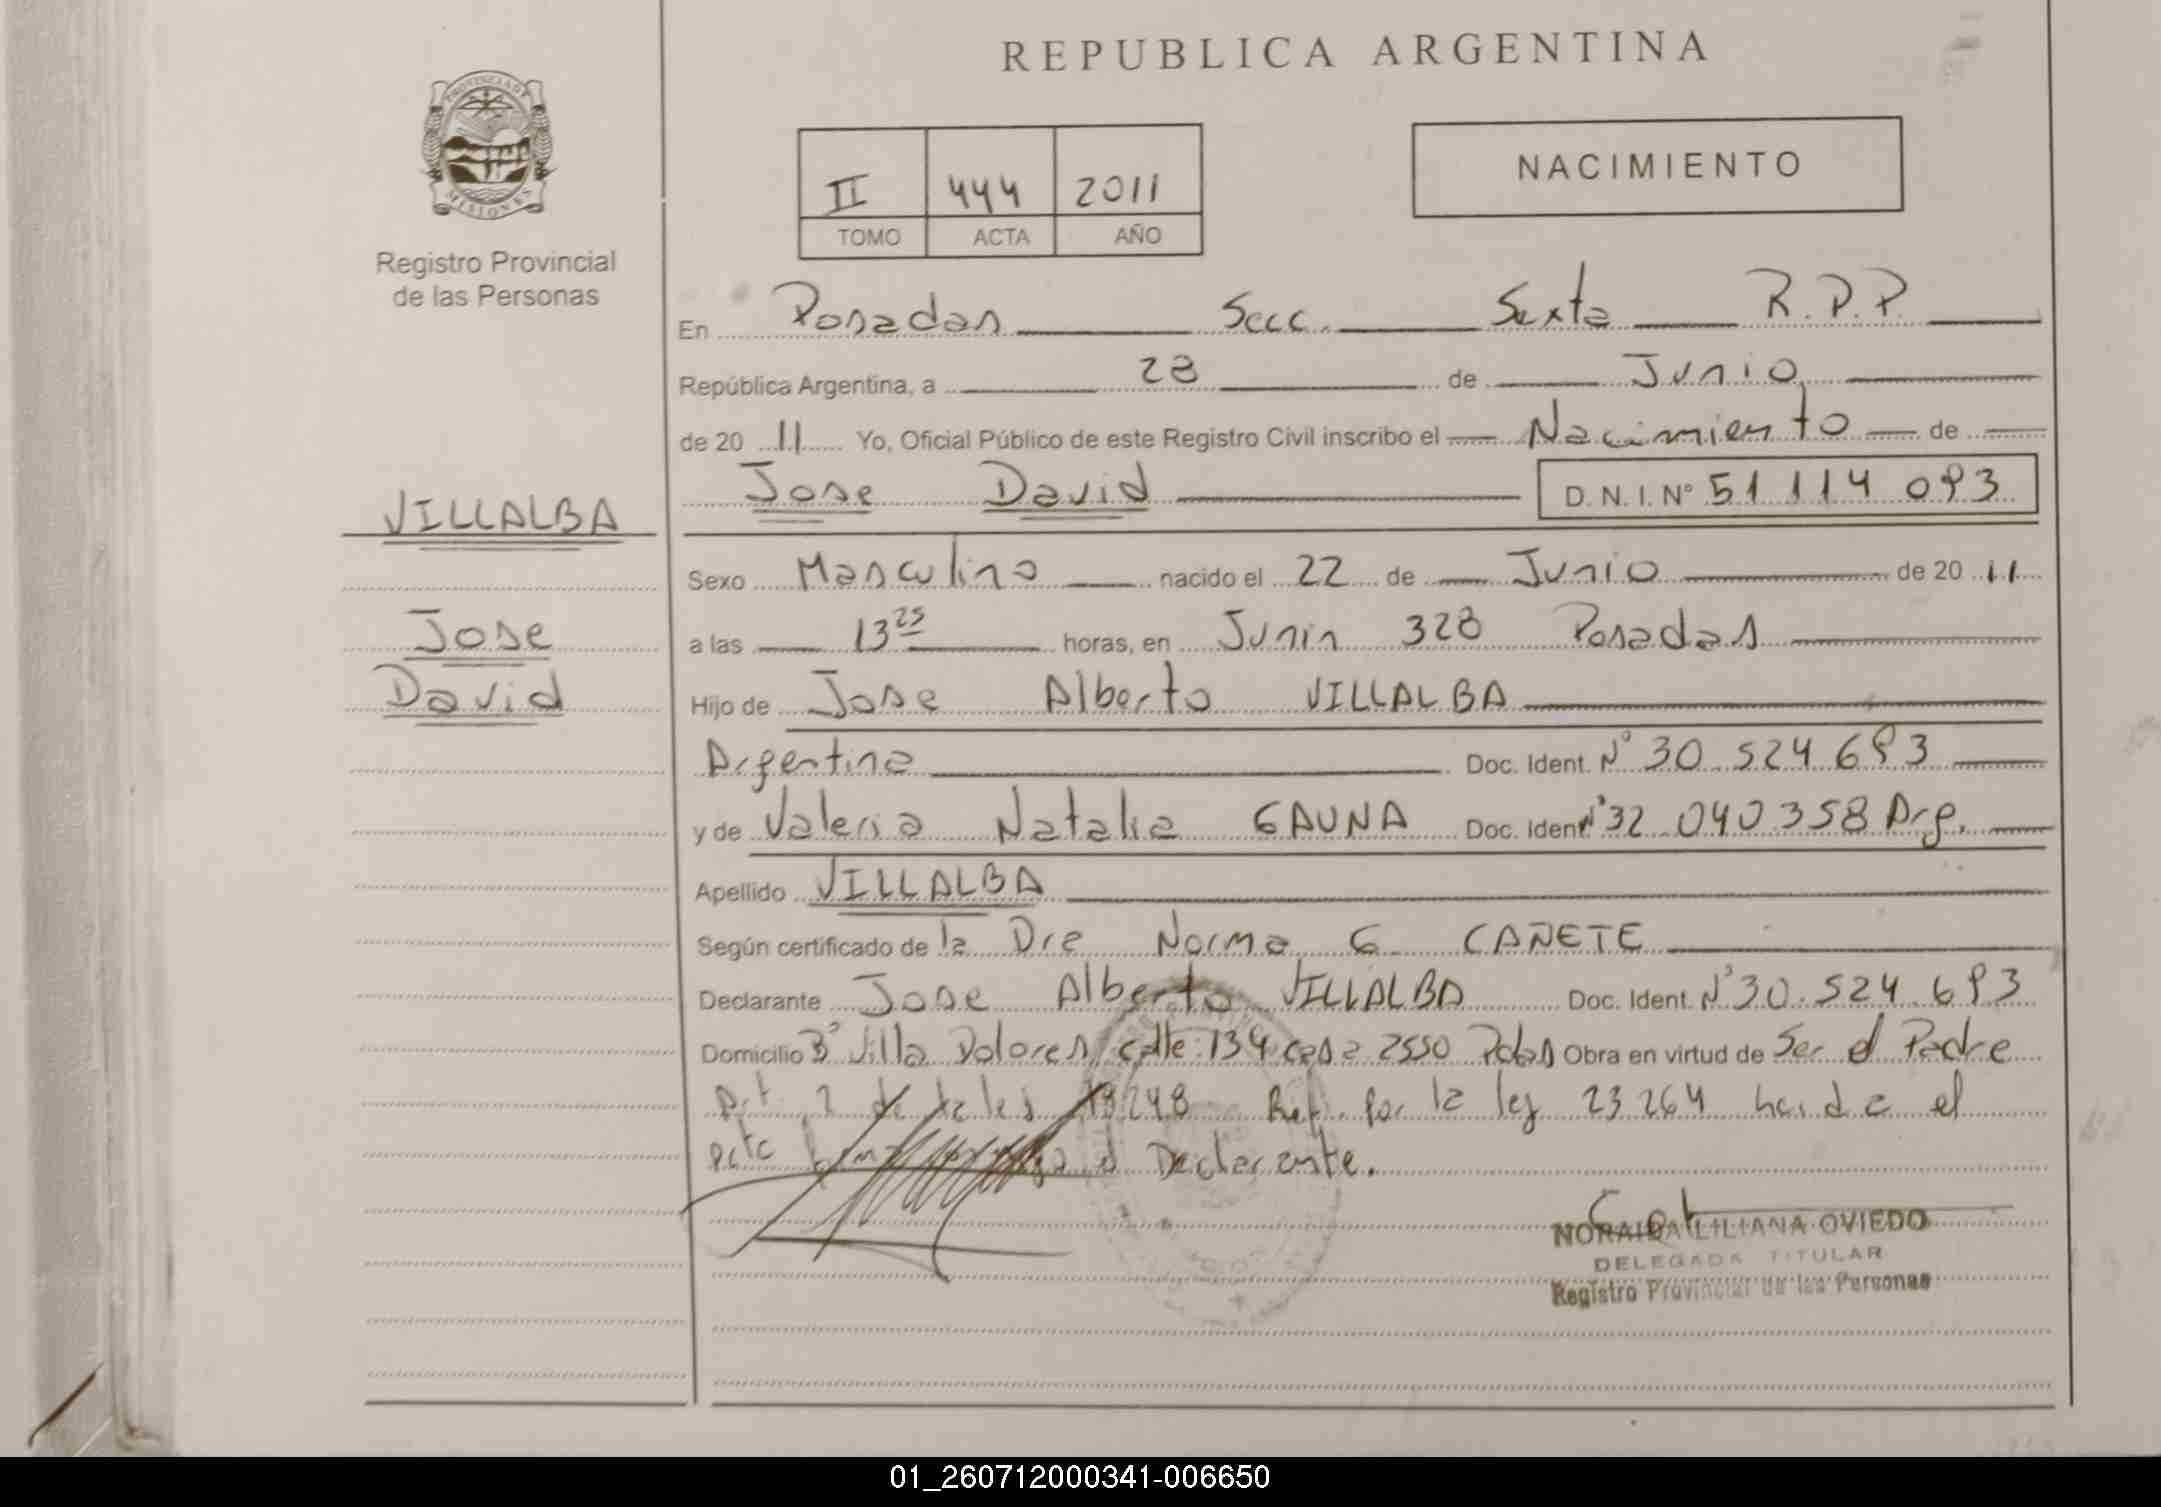 REPUBLICA ARGENTINA
PROVINCIA DE
MISIONES
Registro Provincial
de las Personas
II 444 2011
TOMO ACTA AÑO
NACIMIENTO
En Posadas Secc. Sexta R.P.P
República Argentina, a 28 de Junio
de 20 11 Yo, Oficial Público de este Registro Civil inscribo el Nacimiento de
Jose David D.N.I. Nº 51 114 093
VILLALBA
Jose
David
Sexo Masculino nacido el 22 de Junio de 20 11
a las 13 25 horas, en Junin 328 Posadas
Hijo de Jose Alberto VILLALBA
Argentina Doc. Ident. Nº 30 524 693
y de Valeria Natalia GAUNA Doc. Ident Nº 32 040 358 Arg.
Apellido VILLALBA
Según certificado de la Dra Norma G CAÑETE
Declarante Jose Alberto VILLALBA Doc. Ident. Nº 30.524.693
Domicilio Bº Villa Dolores calle 134 casa 2550 Pdas Obra en virtud de Ser el Padre
Art. 2 de la ley 18248 Ref. por la ley 23264 el
Acta el Declarante.
NORAIDA LILIANA OVIEDO
DELEGADA TITULAR
Registro Provincial de las Personas
01_260712000341-006650